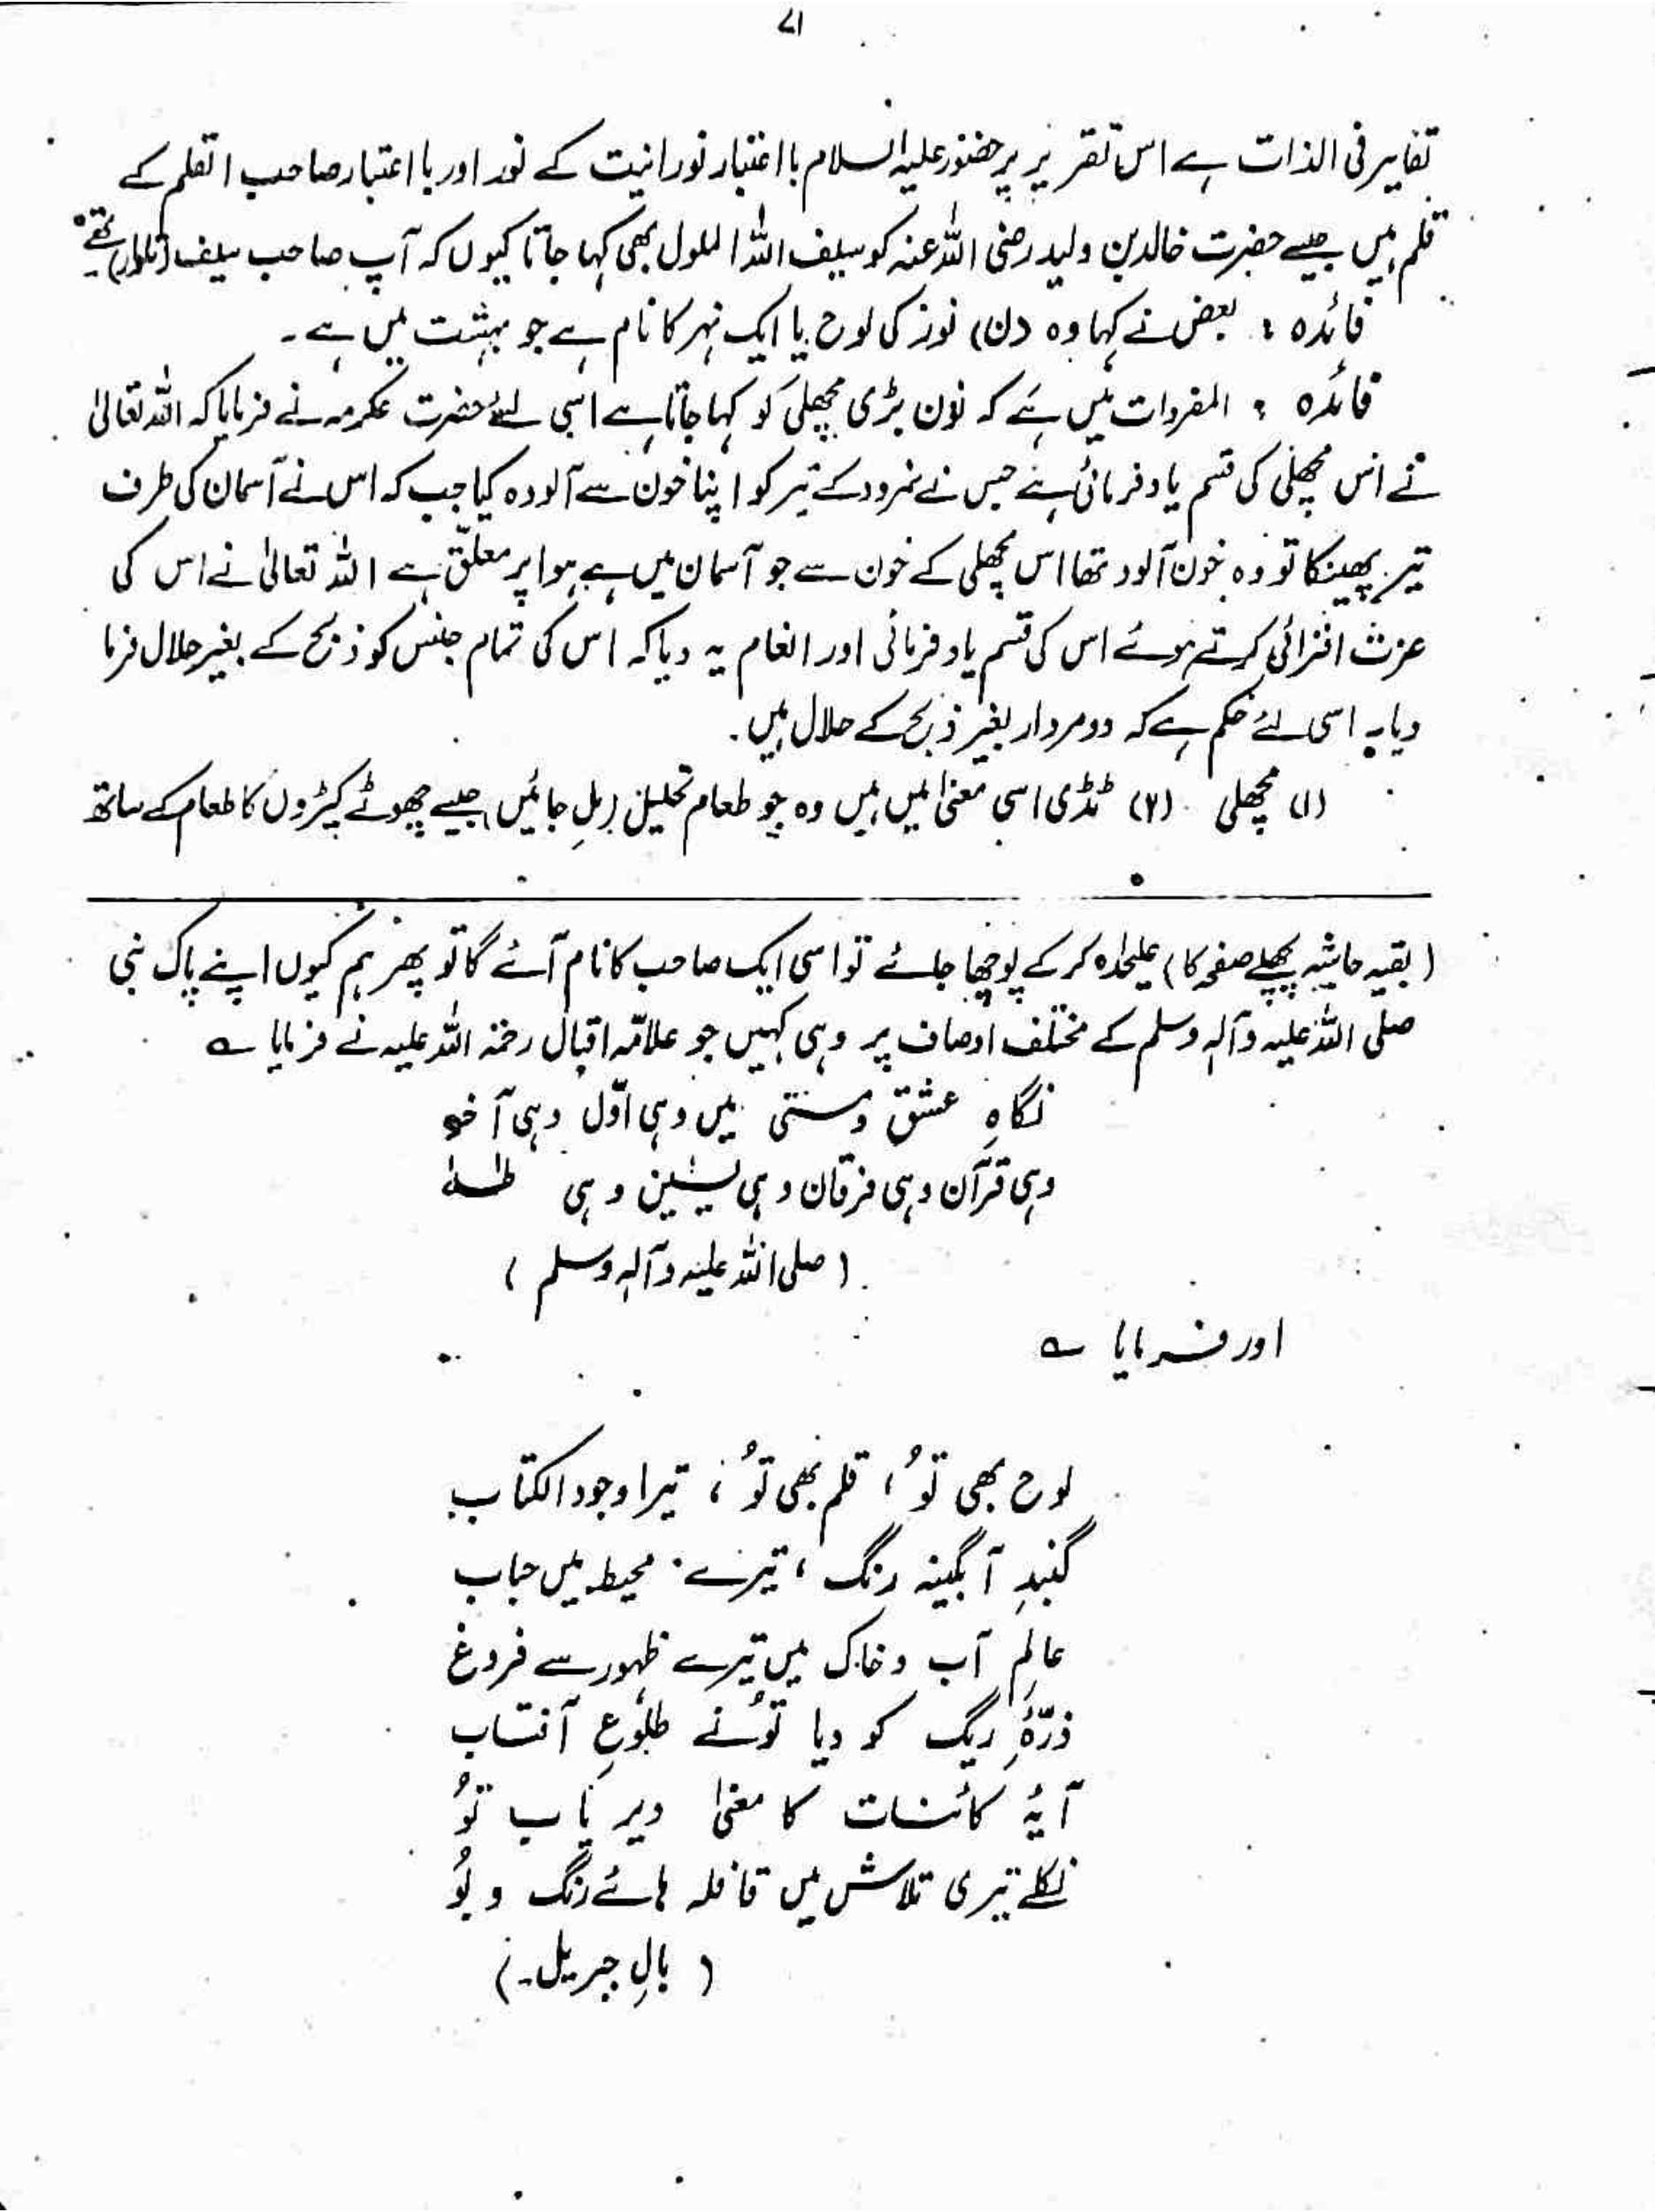 ۷۱
تغایر فی الذات ہے اس تقریر پر حضور علیہ السلام با اعتبار نورانیت کے نور اور با اعتبار صاحب القلم کے
قلم ہیں جیسے حضرت خالد بن ولید رضی اللہ عنہ کو سیف اللہ المسلول بھی کہا جاتا کیوں کہ آپ صاحب سیف (تلوار) تھے۔
فائدہ : بعض نے کہا وہ (ن) نور کی لوح یا ایک نہر کا نام ہے جو بہشت میں ہے۔
فائدہ : المفردات میں ہے کہ نون بڑی مچھلی کو کہا جاتا ہے اسی لئے حضرت عکرمہ نے فرمایا کہ اللہ تعالیٰ
نے اس مچھلی کی قسم یاد فرمائی ہے جس نے نمرود کے تیر کو اپنا خون سے آلودہ کیا جب کہ اس نے آسمان کی طرف
تیر پھینکا تو وہ خون آلود تھا اس مچھلی کے خون سے جو آسمان میں ہے ہوا پر معلّق ہے اللہ تعالیٰ نے اس کی
عزت افزائی کرتے ہوئے اس کی قسم یاد فرمائی اور انعام یہ دیا کہ اس کی تمام جنس کو ذبح کے بغیر حلال فرما
دیا۔ اسی لئے حکم ہے کہ دو مردار بغیر ذبح کے حلال ہیں۔
(۱) مچھلی (۲) ٹڈی اسی معنیٰ میں ہیں وہ جو طعام تحلیل (مل جائیں) جیسے چھوٹے کیڑوں کا طعام کے ساتھ
(بقیہ حاشیہ پچھلے صفحہ کا) علیحدہ کر کے پوچھا جائے تو اسی ایک صاحب کا نام آئے گا تو پھر ہم کیوں اپنے پاک نبی
صلی اللہ علیہ وآلہ وسلم کے مختلف اوصاف پر وہی کہیں جو علامّہ اقبال رحمۃ اللہ علیہ نے فرمایا ؎
نگاہِ عشق و مستی میں وہی اوّل وہی آخر
وہی قرآن وہی فرقان وہی یٰسین وہی طٰہٰ
(صلی اللہ علیہ وآلہ وسلم)
اور فرمایا ؎
لوح بھی تُو، قلم بھی تُو، تیرا وجود الکتاب
گنبدِ آبگینہ رنگ، تیرے محیط میں حباب
عالمِ آب و خاک میں تیرے ظہور سے فروغ
ذرّۂ ریگ کو دیا تُو نے طلوعِ آفتاب
آیۂ کائنات کا معنیٰ دیر یاب تُو
نکلے تیری تلاش میں قافلہ ہائے رنگ و بُو
(بالِ جبریل۔)